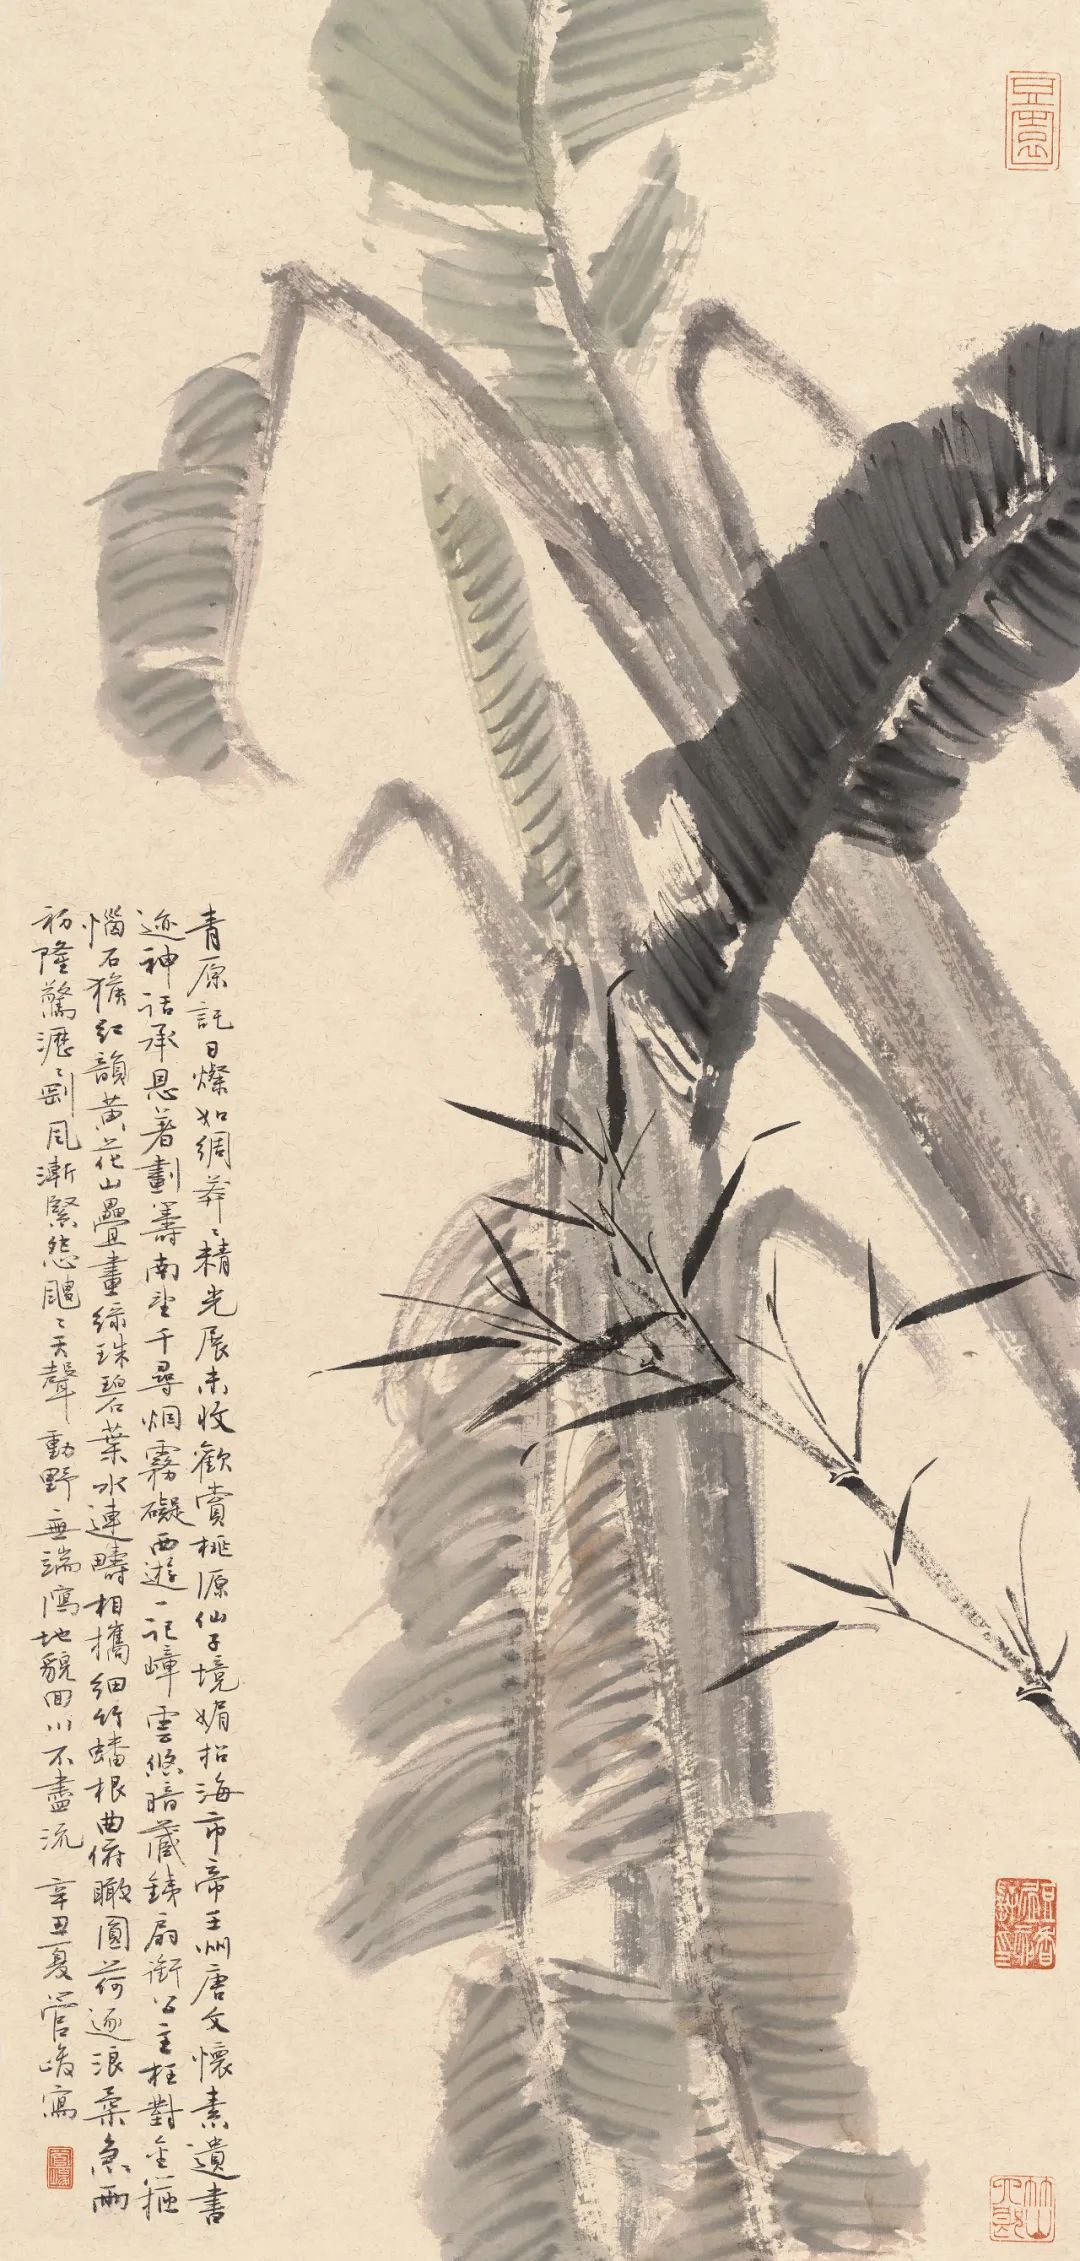 青原託日燦如綢莽〻精光展未收歡賞桃源仙子境媚招海市帝王州唐文懷素遺書
迹神話承恩著劃籌南望千尋烟霧礙西遊一記嶂雲悠暗藏鉄扇銜公主枉對金箍
惱石猴紅韻黃花山疊畫綠珠碧葉水連疇相攜細竹蟠根曲俯瞰圓荷逐浪柔急雨
初隆驚瀝〻剛風漸緊怨颸〻天聲動野無端瀉地貌回川不盡流 辛丑夏管峻寫